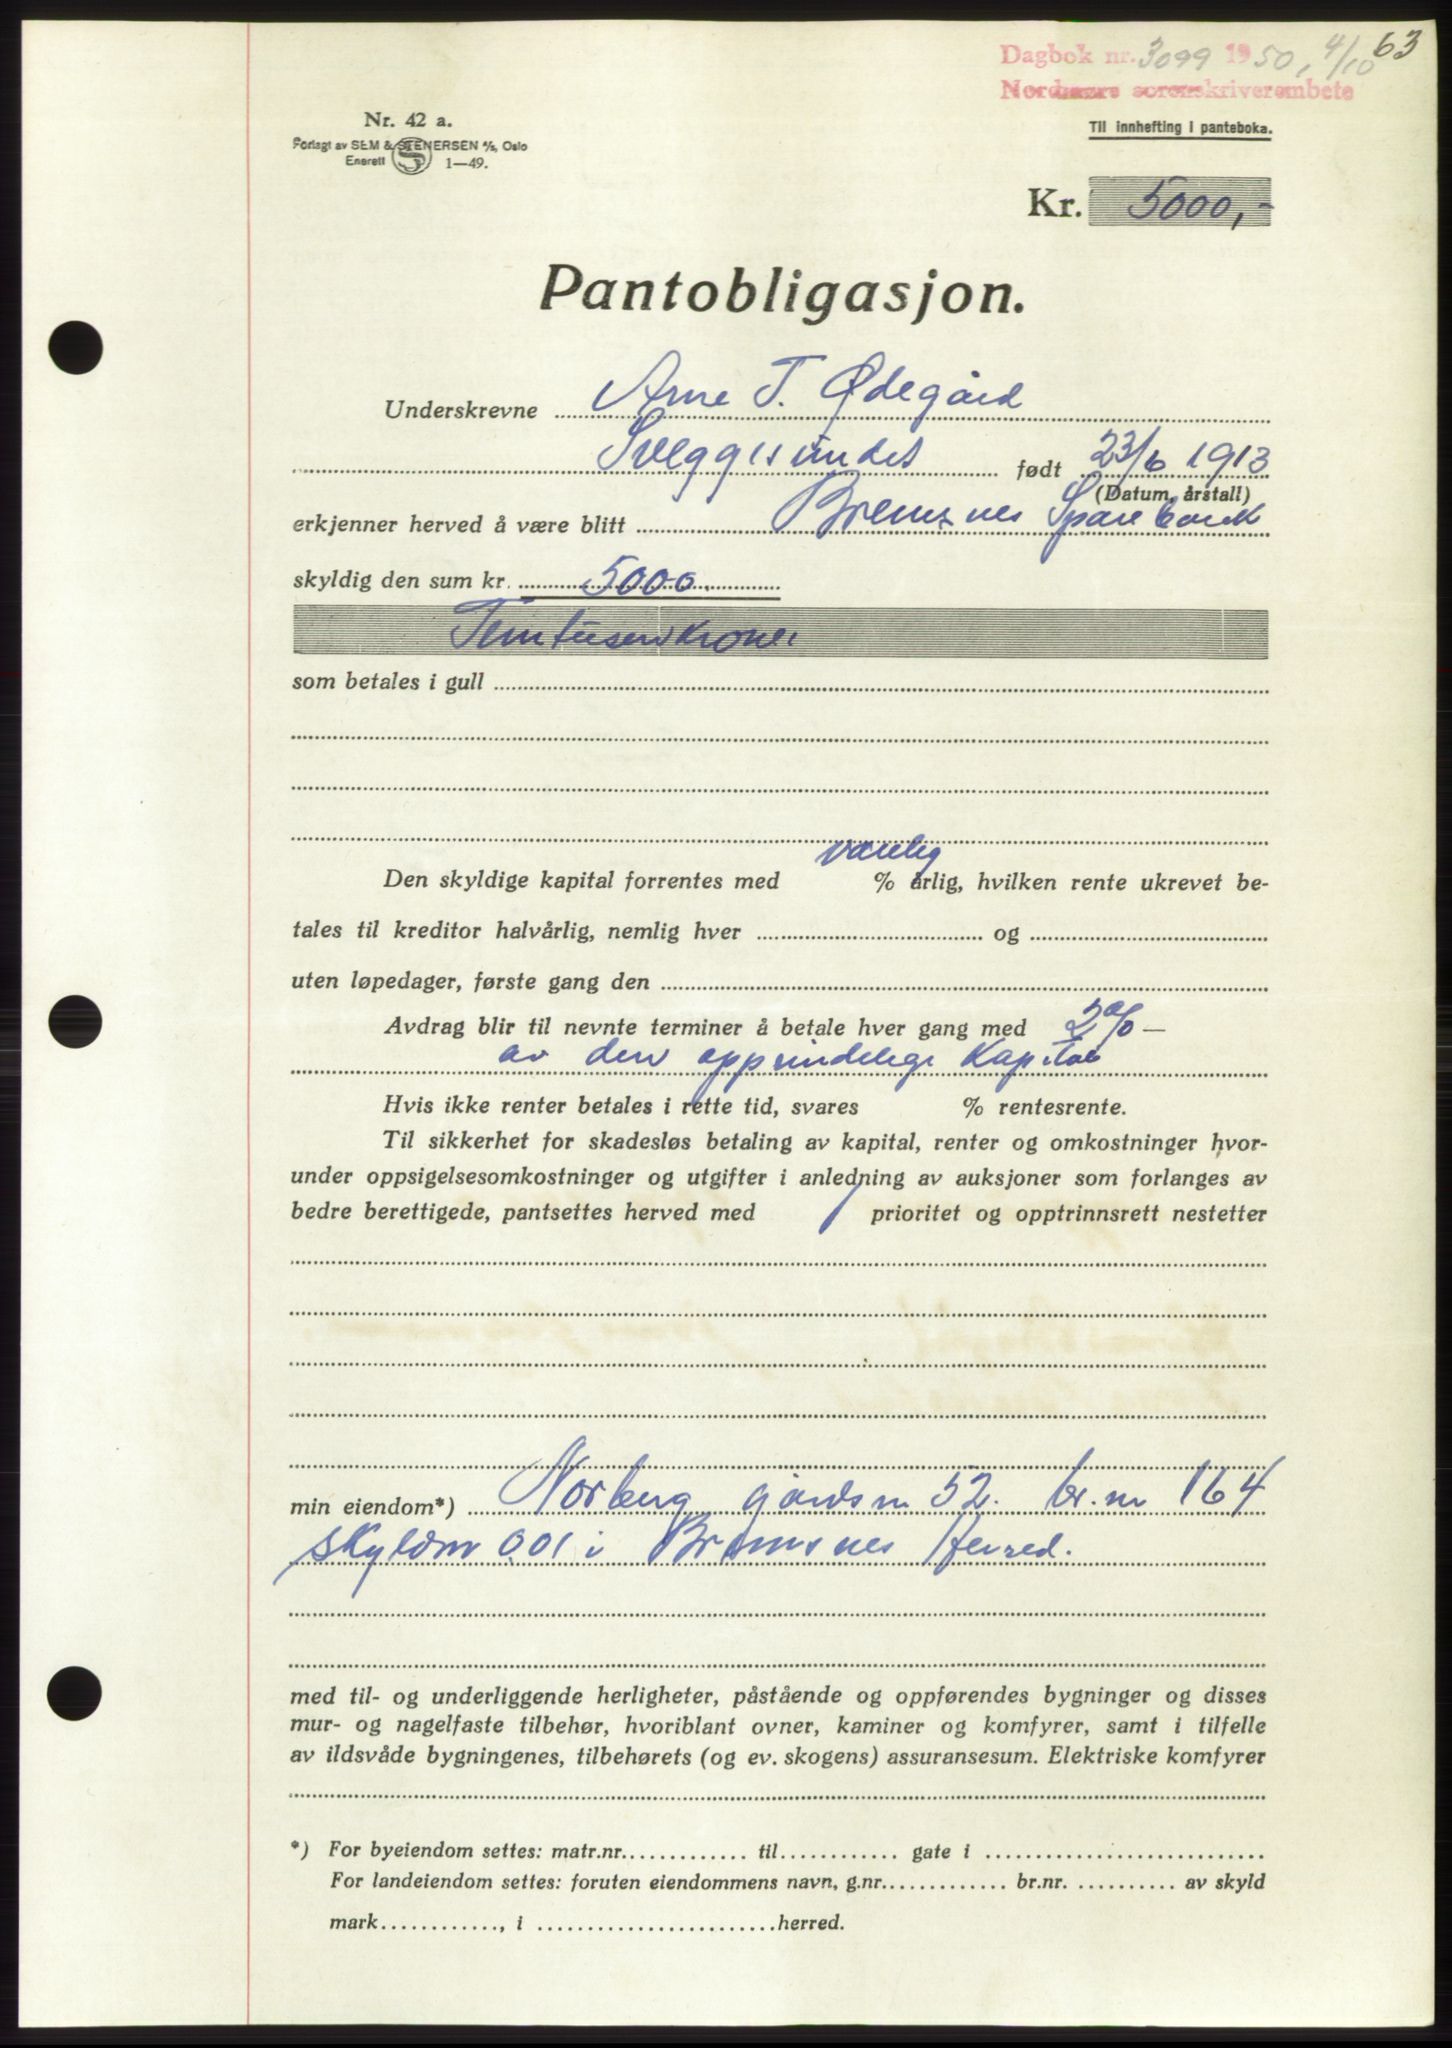 63
Dagbok nr. 3099 1950, 4/10
Nordmøre sorenskriverembete
Nr. 42 a.
Til innhefting i panteboka.
Forlagt av SEM & STENERSEN A/S, Oslo
Enerett 1—49.
Kr. 5000,-
Pantobligasjon.
Underskrevne Arne T. Ødegård
Sveggesundet født 23/6 1913
(Datum, årstall)
erkjenner herved å være blitt Bremsnes Sparebank
skyldig den sum kr. 5000
Femtusenkroner
som betales i gull
vanlig
Den skyldige kapital forrentes med % årlig, hvilken rente ukrevet be-
tales til kreditor halvårlig, nemlig hver og
uten løpedager, første gang den
Avdrag blir til nevnte terminer å betale hver gang med 2% —
av den opprindelige Kapital
Hvis ikke renter betales i rette tid, svares % rentesrente.
Til sikkerhet for skadesløs betaling av kapital, renter og omkostninger hvor-
under oppsigelsesomkostninger og utgifter i anledning av auksjoner som forlanges av
bedre berettigede, pantsettes herved med 1 prioritet og opptrinnsrett nestetter
min eiendom*) Norberg gårdsnr 52. br.nr 164
skyldm 0.01 i Bremsnes Herred.
med til- og underliggende herligheter, påstående og oppførendes bygninger og disses
mur- og nagelfaste tilbehør, hvoriblant ovner, kaminer og komfyrer, samt i tilfelle
av ildsvåde bygningenes, tilbehørets (og ev. skogens) assuransesum. Elektriske komfyrer
*) For byeiendom settes: matr.nr. til gate i
For landeiendom settes: foruten eiendommens navn, g.nr. br.nr. av skyld
mark, i herred.